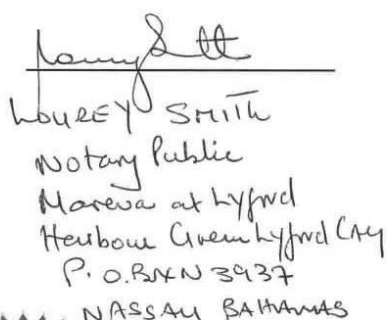 LOUREY SMITH
Notary Public
Mareva at Lyford
Harbour Green Lyford Cay
P.O.BXN 3937
NASSAU BAHAMAS